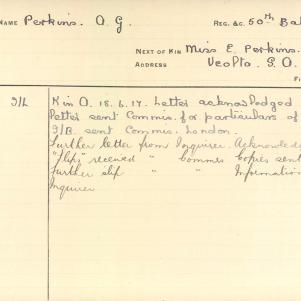 NAME Perkins. A. G. REG. &C. 50th Bat
NEXT OF KIN Miss E. Perkins.
ADDRESS P. O.
9/L K in A. 18.6.17. Letter acknowledged
Letter sent Commis. for particulars of
9/B. sent Commis. London.
Further letter from Inquirer. Acknowled
"slips" received " Commis Copies sent
Further slip " " Information
Inquirer